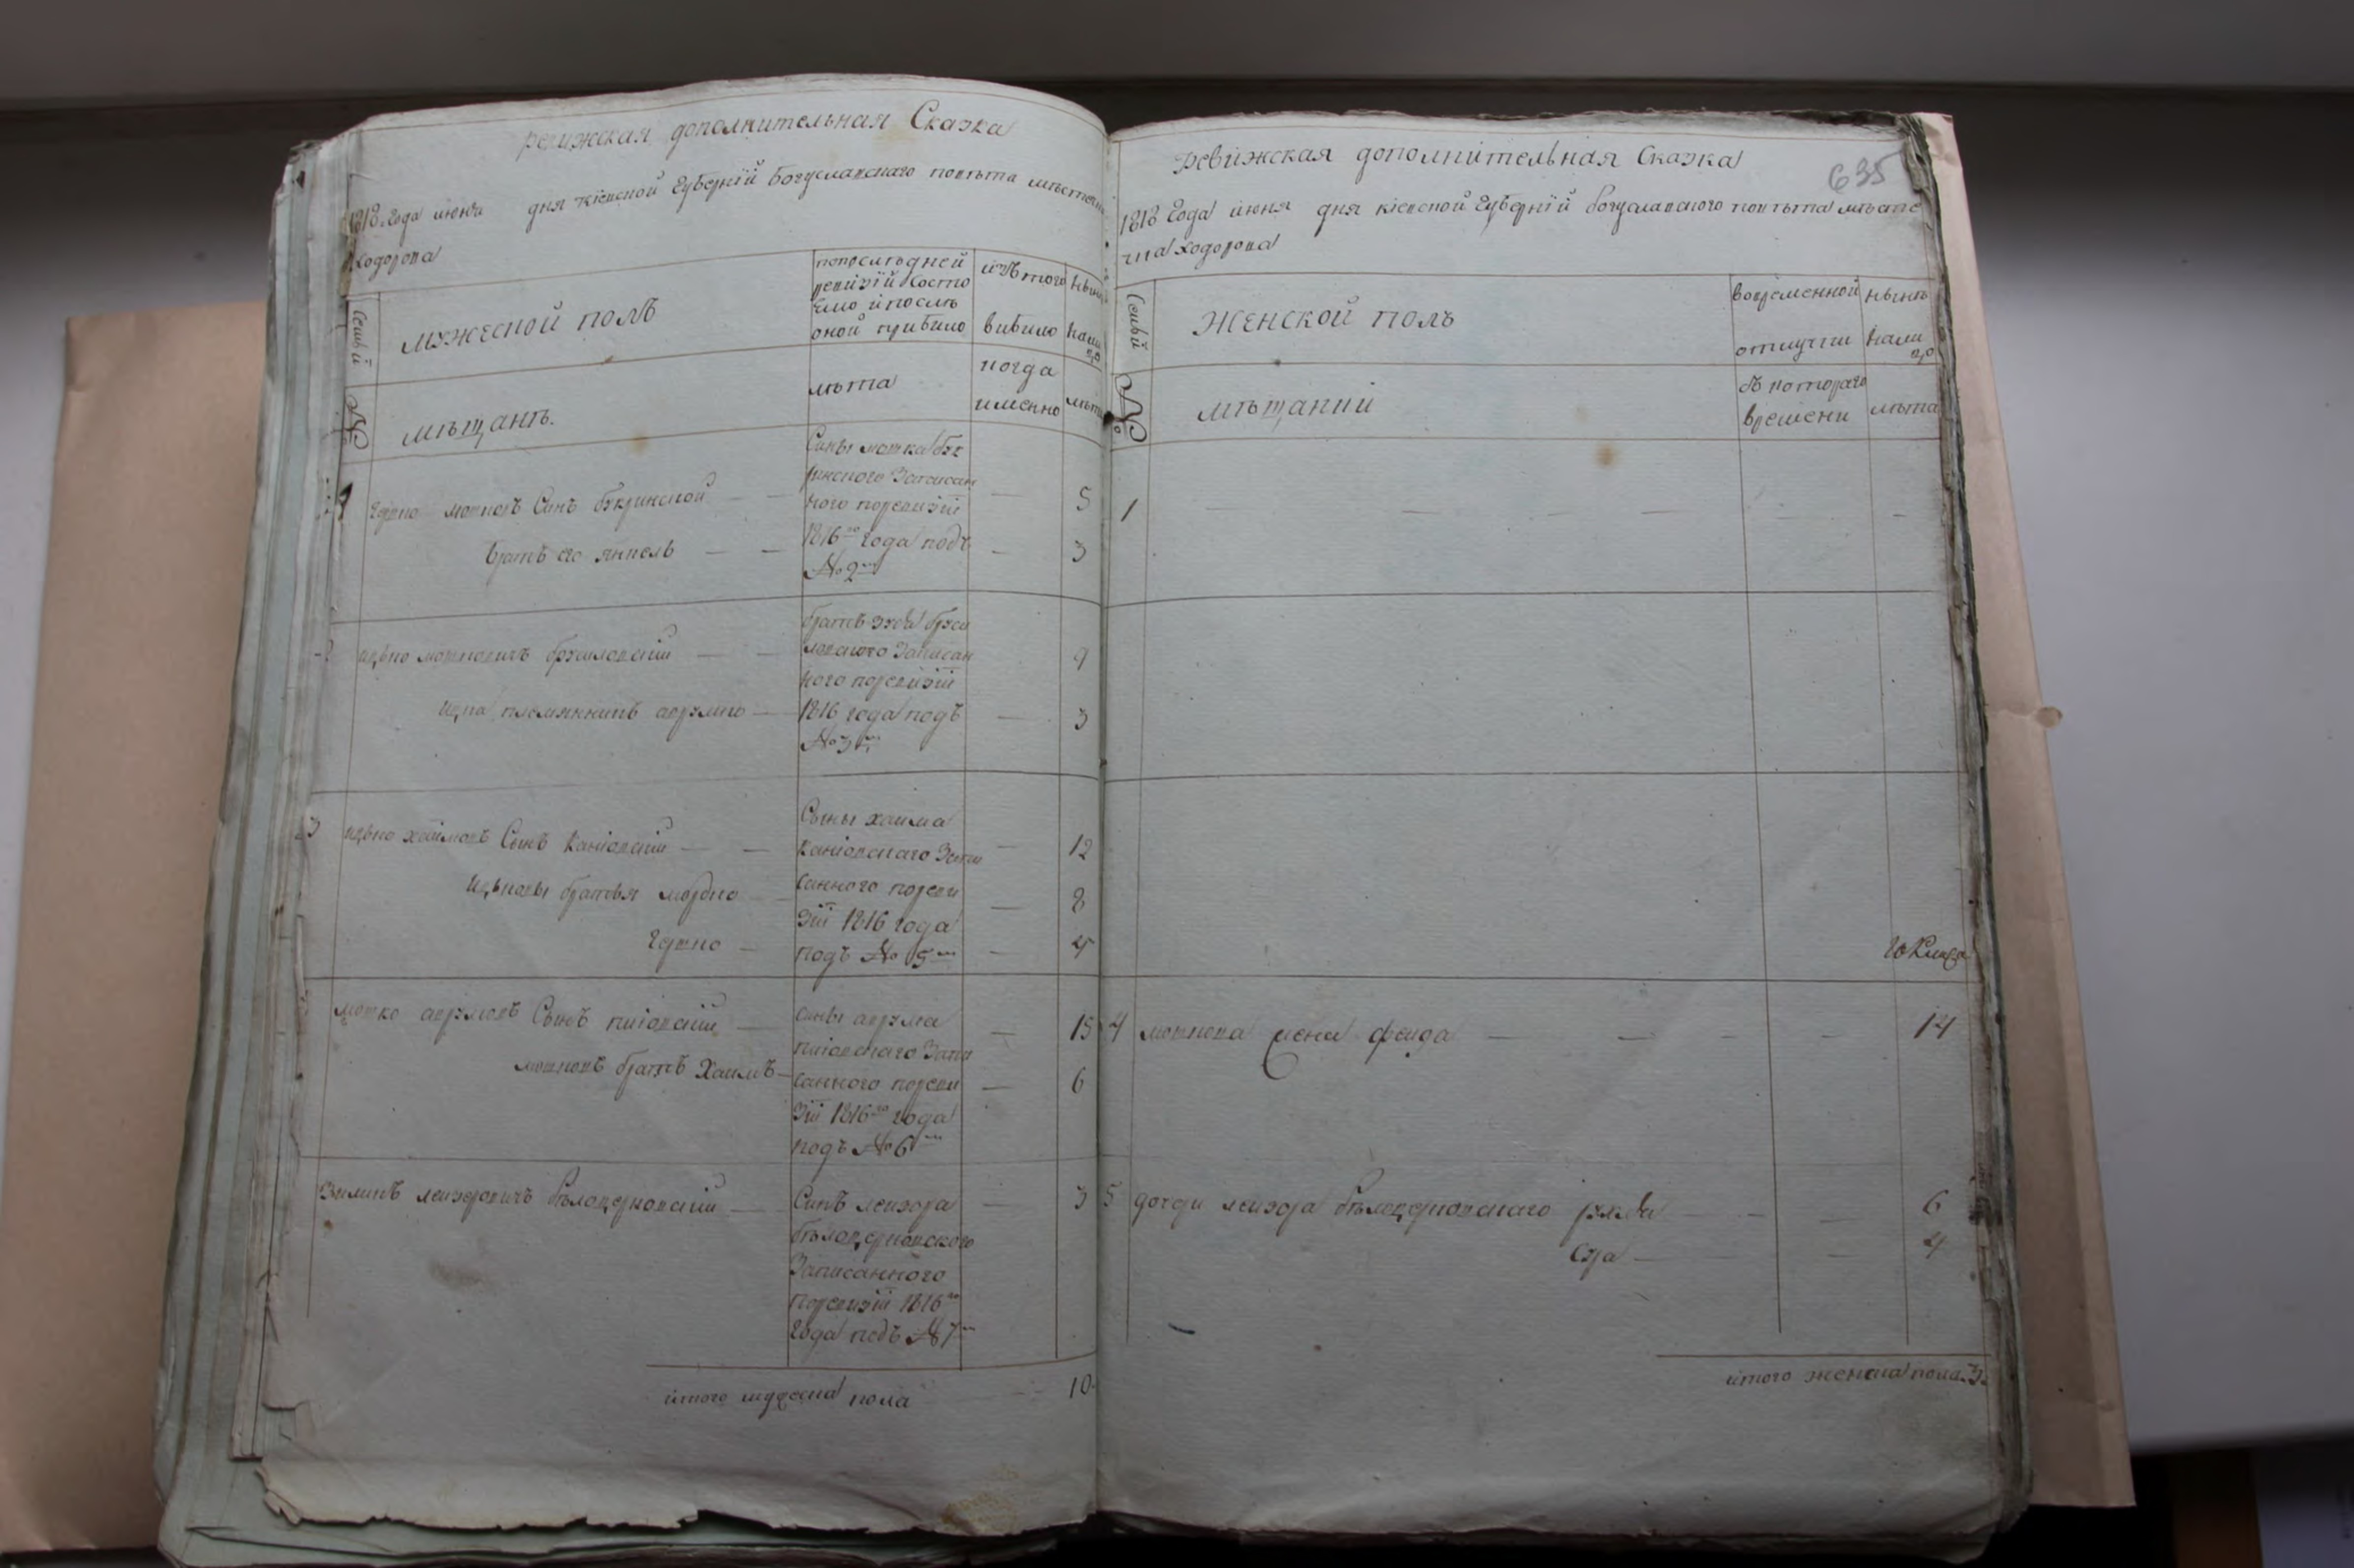 ревижская дополнительная Сказка
1818 года июня дня кіевской губерніи Богуславскаго повѣта мѣстеч
ходорова
Семьи
мужеской полъ
попослѣдней
ревизіи состо
яло и послѣ
оной прибыло
изъ того
выбыло
нынѣ
нали
цо
№
мѣщанъ.
лѣта
когда
именно
лѣта
1
Гершко мошковъ Синъ букринской
Сины мошка бук
ринского Записан
ного поревизіи
1816го года подъ
№ 2мъ
5
братъ его янкель
3
ицько мошковичъ бружиловскіи
братъ
ловского Записан
ного поревизіи
1816 года подъ
№ 3мъ
9
ицка племянникъ аврумко
3
3
ицько хаимовъ Сынъ Каніовскіи
Сыны хаима
Каніовскаго Запи
санного цореви
зіи 1816 года
подъ № 5мъ
12
ицьковы братья мордко
8
Гершко
4
мошко аврумовъ Сынъ кііовскіи
сины аврума
кііовскаго Запи
санного пореви
зіи 1816го года
подъ № 6мъ
15
мошковъ братъ Хаимъ
6
лейзеровичъ бѣлоцерковскіи
Синъ лейзора
бѣлоцерковского
Записанного
поревизіи 1816го
года подъ № 7мъ
3
итого мужеска пола
10
635
ревижская дополнительная Сказка
1818 года июня дня кіевской губерніи богуславского повѣта мѣсте
чка ходорова
Семьи
Женской полъ
вовременной
отлучки
нынѣ
нали
цо
№
мѣщанки
съ котораго
времени
лѣта
1
4 мошкова жена фейга
14
5 дочери лейзора бѣлоцерковскаго
6
сура
4
итого женска пола 3.